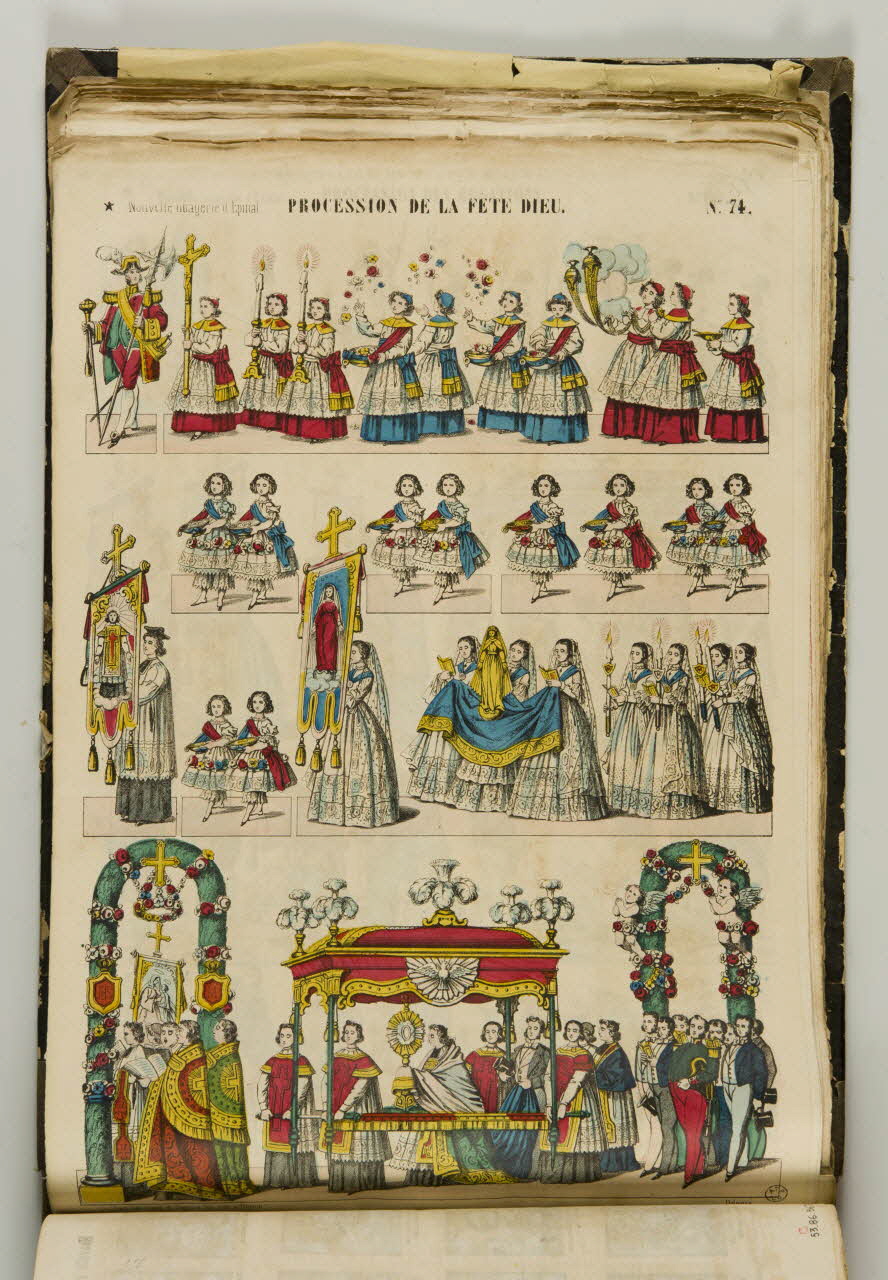 ★ Nouvelle imagerie d'Epinal
PROCESSION DE LA FÊTE DIEU.
N.º 74.
53.86.5